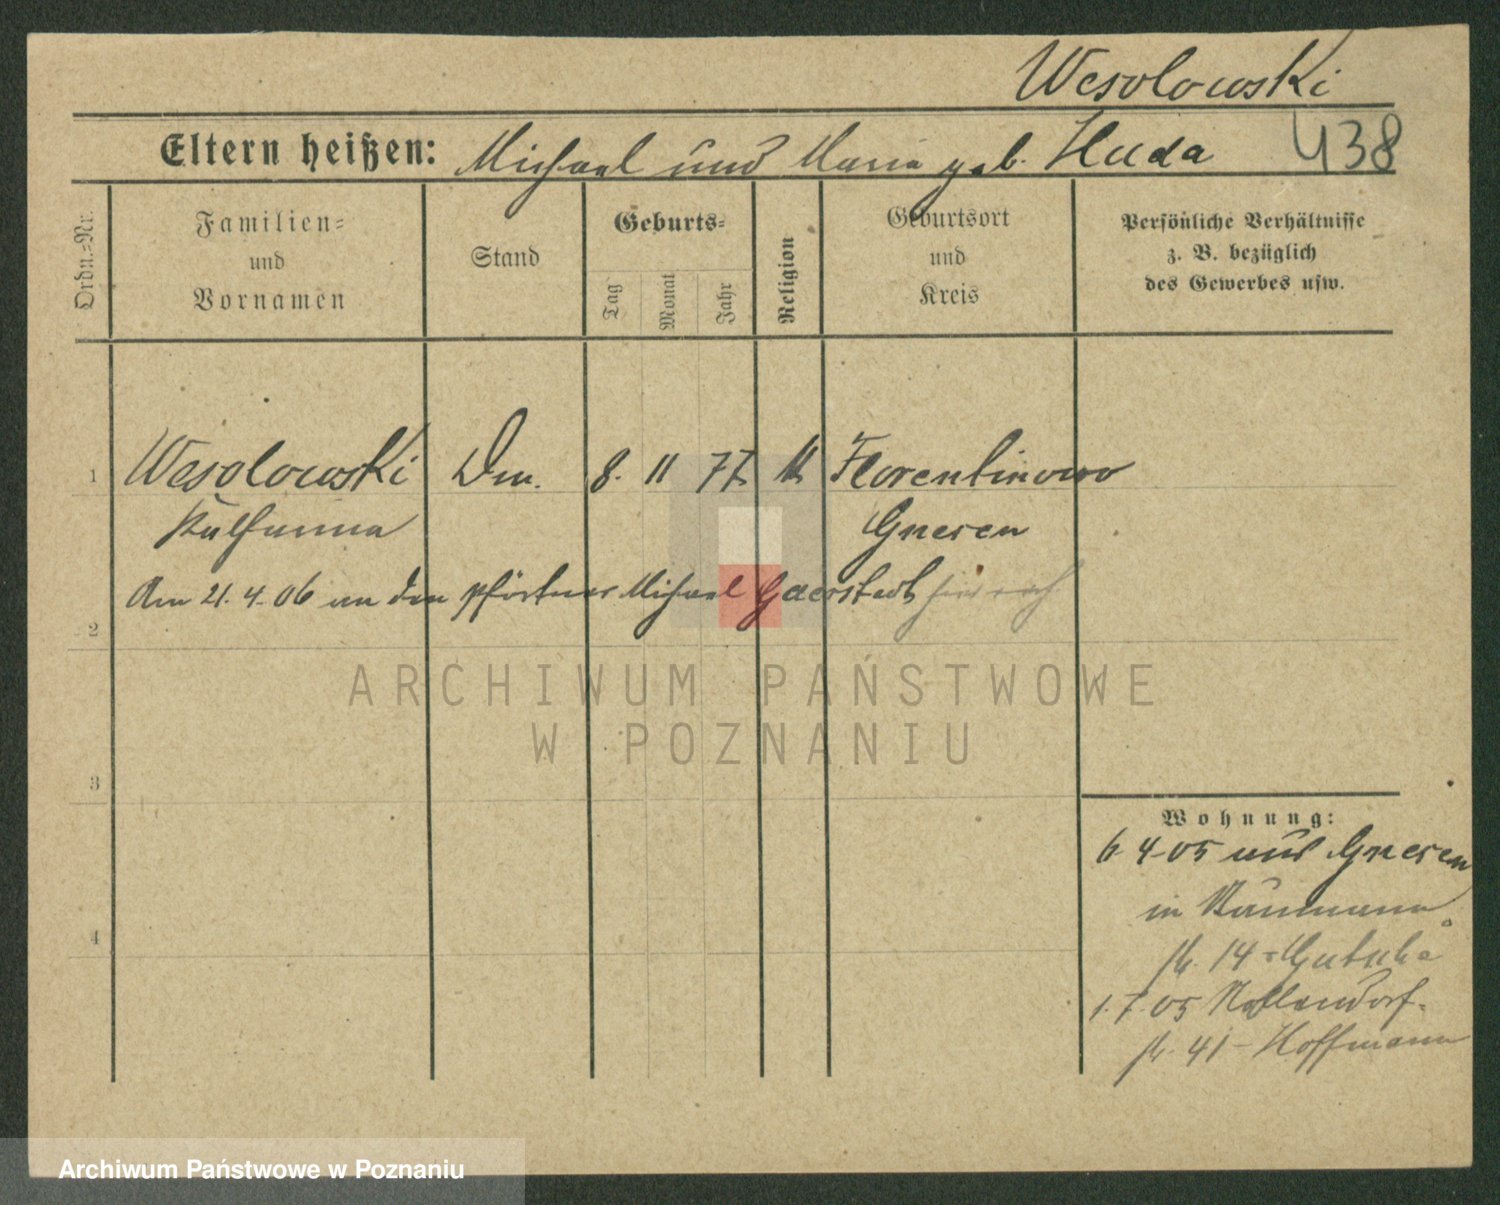 Wesolowski
Eltern heißen: Michael und Maria geb. Huda 438
Ordn.-Nr.
Familien-
und
Vornamen
Stand
Geburts-
Tag
Monat
Jahr
Religion
Geburtsort
und
Kreis
Persönliche Verhältnisse
z. B. bezüglich
des Gewerbes usw.
1 Wesolowski Dm. 8. 11 77 k Florentinowo
Katharina Gnesen
Am 21.4.06 an den Pförtner Michael
2
3
4
Wohnung:
6.4.05 aus Gnesen
in Naumann-
str. 14
1.7.05 Nollendorf-
str. 41 - Hoffmann
ARCHIWUM PAŃSTWOWE
W POZNANIU
Archiwum Państwowe w Poznaniu